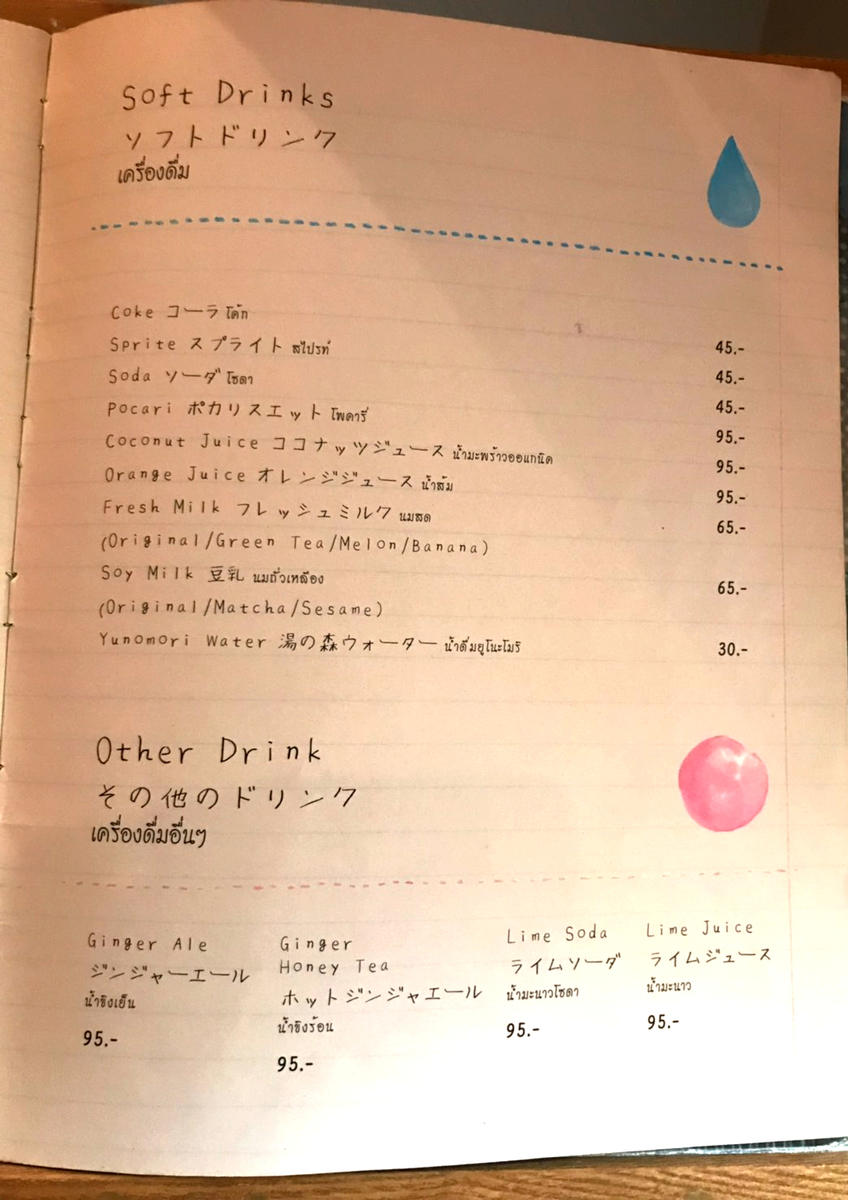 Soft Drinks
ソフトドリンク
เครื่องดื่ม
Coke コーラ โค้ก
Sprite スプライト สไปรท์ 45.-
Soda ソーダ โซดา 45.-
Pocari ポカリスエット โพคารี่ 45.-
Coconut Juice ココナッツジュース น้ำมะพร้าวออแกนิค 95.-
Orange Juice オレンジジュース น้ำส้ม 95.-
Fresh Milk フレッシュミルク นมสด 95.-
(Original/Green Tea/Melon/Banana) 65.-
Soy Milk 豆乳 นมถั่วเหลือง 65.-
(Original/Matcha/Sesame)
Yunomori Water 湯の森ウォーター น้ำดื่มยูโนะโมริ 30.-
Other Drink
その他のドリンク
เครื่องดื่มอื่นๆ
Ginger Ale
ジンジャーエール
น้ำขิงเย็น
95.-
Ginger
Honey Tea
ホットジンジャエール
น้ำขิงร้อน
95.-
Lime Soda
ライムソーダ
น้ำมะนาวโซดา
95.-
Lime Juice
ライムジュース
น้ำมะนาว
95.-